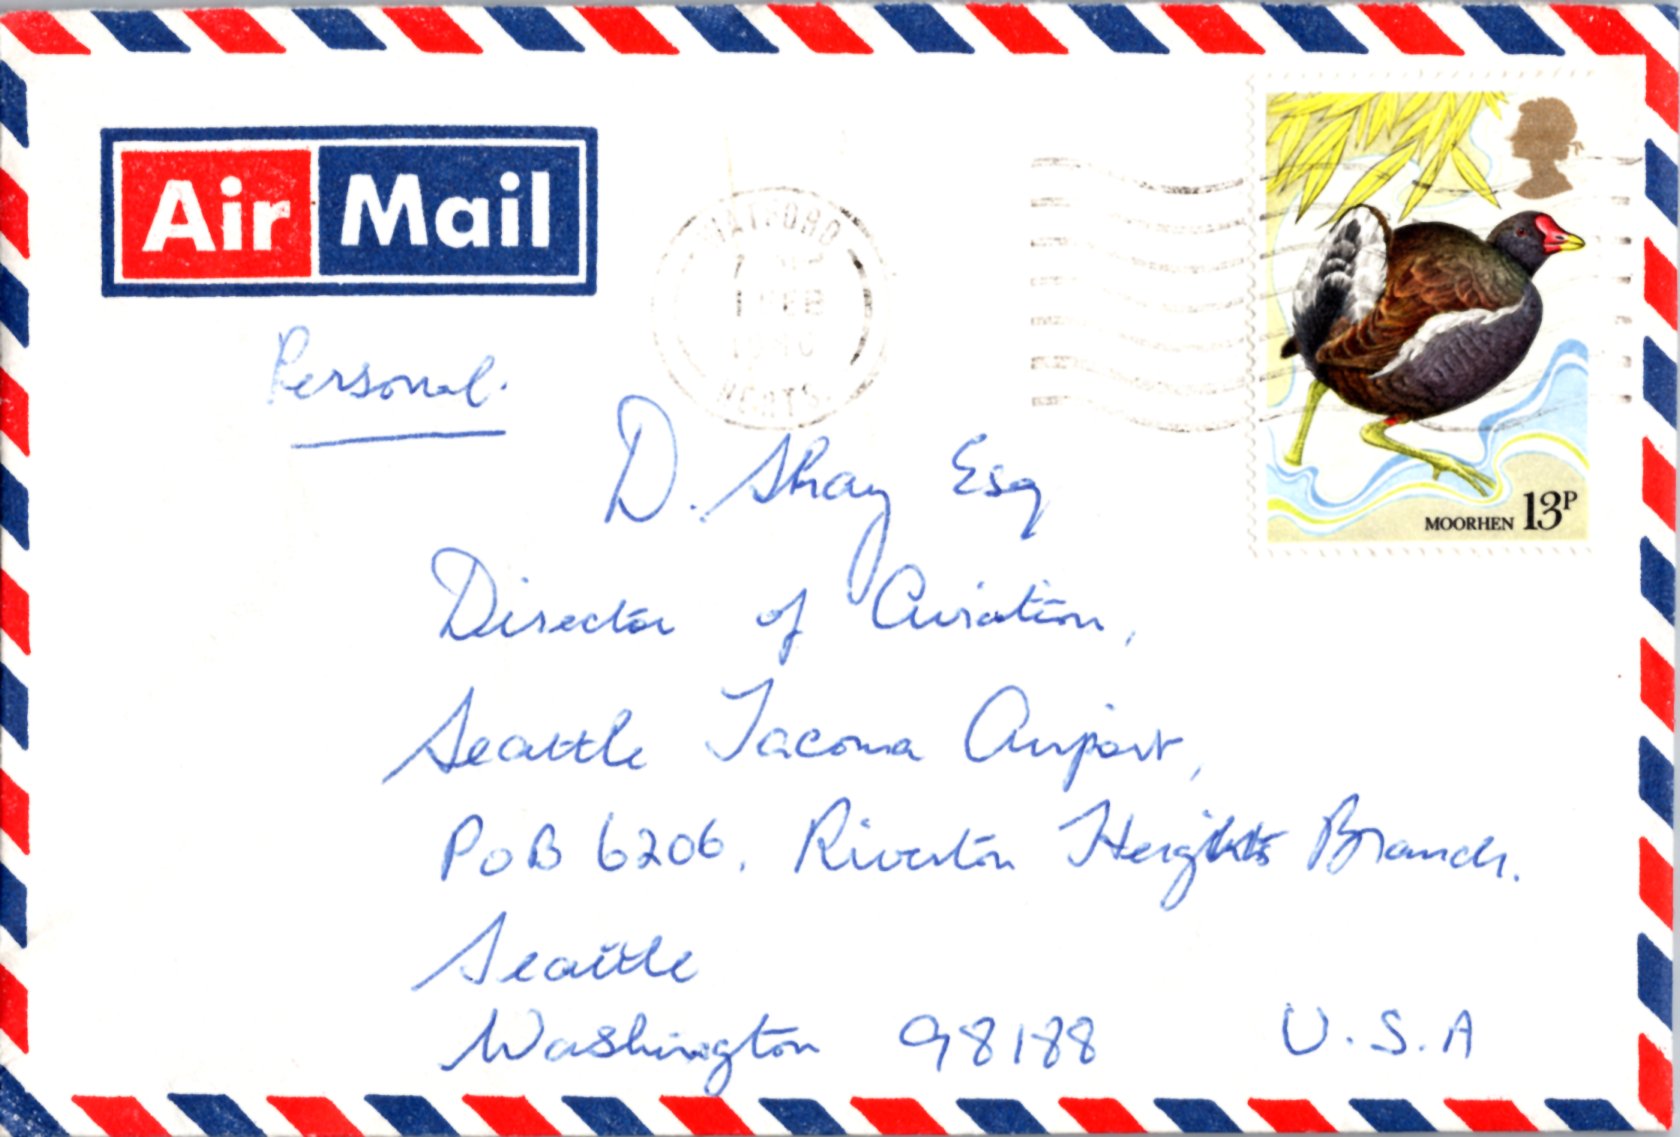 Air Mail
WATFORD
1 FEB
1980
HERTS.
MOORHEN 13P
Personal.
D. Shay Esq
Director of Aviation,
Seattle Tacoma Airport,
PoB 6206, Riverton Heights Branch.
Seattle
Washington 98188 U.S.A